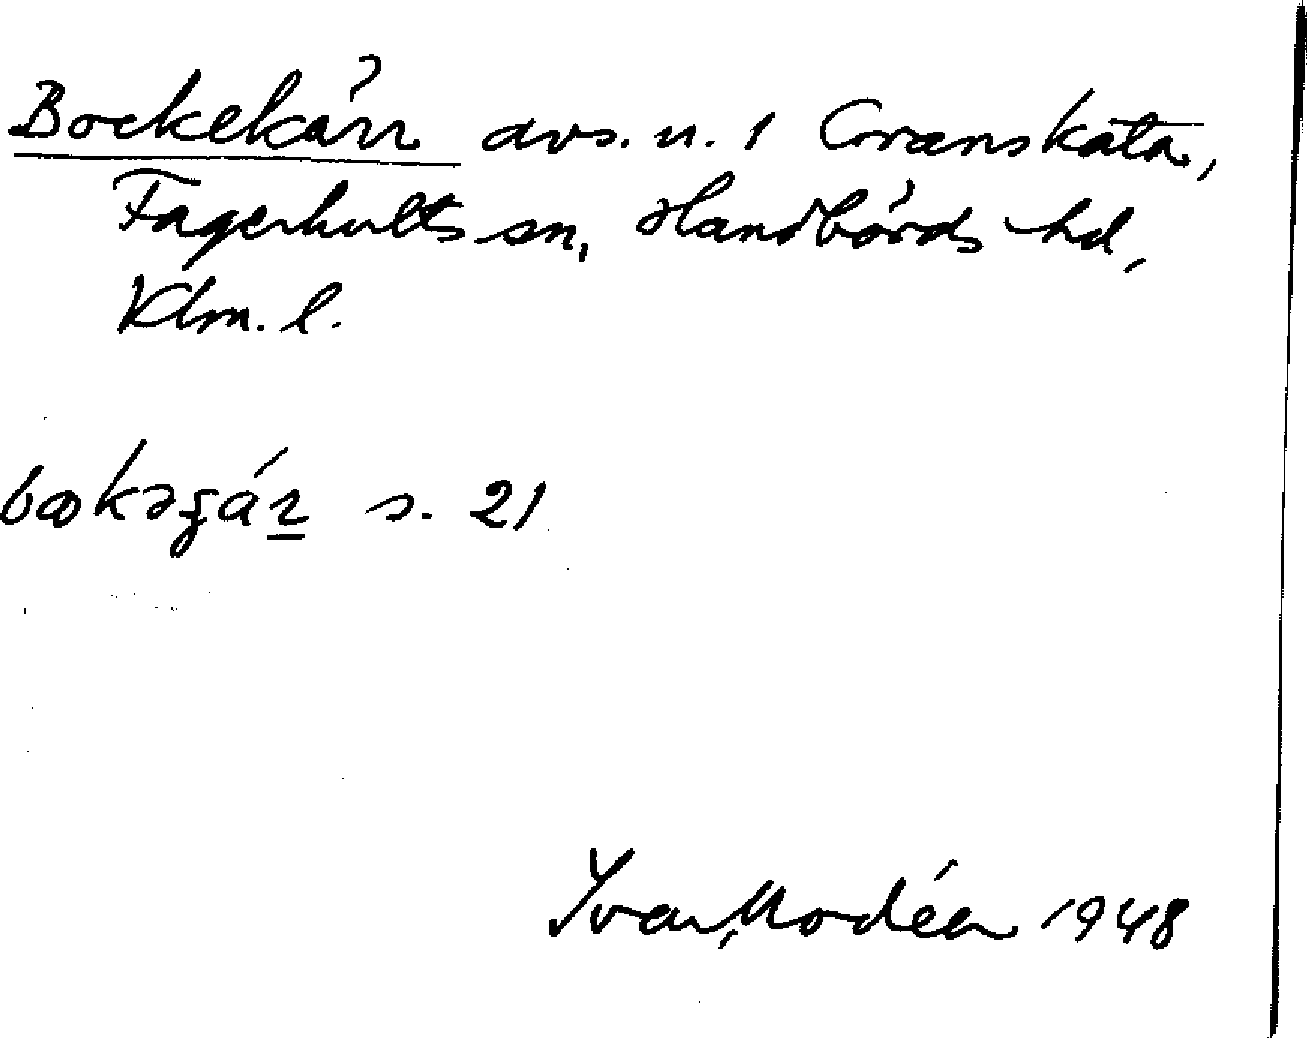 Bockekärr avs. u. 1 Granskata,
Fagerhults sn, Handbörds hd,
Klm. l.
bɷkəʒár s. 21
Yvar Modéer 1948